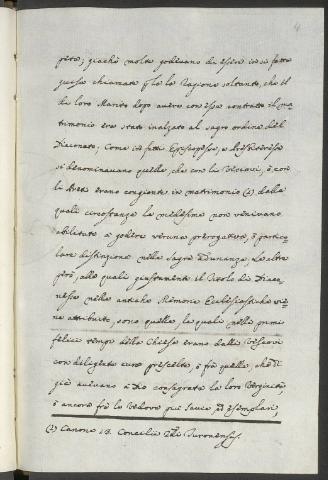 4
però; giachè molte godevano di essere in sì fatta
guisa chiamate p. la la ragione soltanto, che il
di loro Marito dopo avere con esse contratto il ma=
trimonio era stato inalzato al sagro ordine del
Diaconato; Come in fatti Episcopesse, o Presbiteresse
si denominavano quelle, che con li Vescovi, o con
li Preti erano congionte in matrimonio (1) dalla
quali circostanza le medesime non venivano
abilitate a godere veruna prerogativa, o partico=
lare distinzione nelle sagre adunanze. Le altre
però, alle quali giustamente il titolo di Diaco=
nesse nelle antiche Memorie Ecclesiastiche vie=
ne attribuito, sono quelle, le quali nelli primi
felici tempi della Chiesa erano dalli Vescovi
con diligente cura prescelte, o frà quelle, che di
già avevano a Dio consegrata la loro Verginità,
o ancora frà le Vedove più savie, ed esemplari,
(1) Canone 13. Concilii Turonensis.